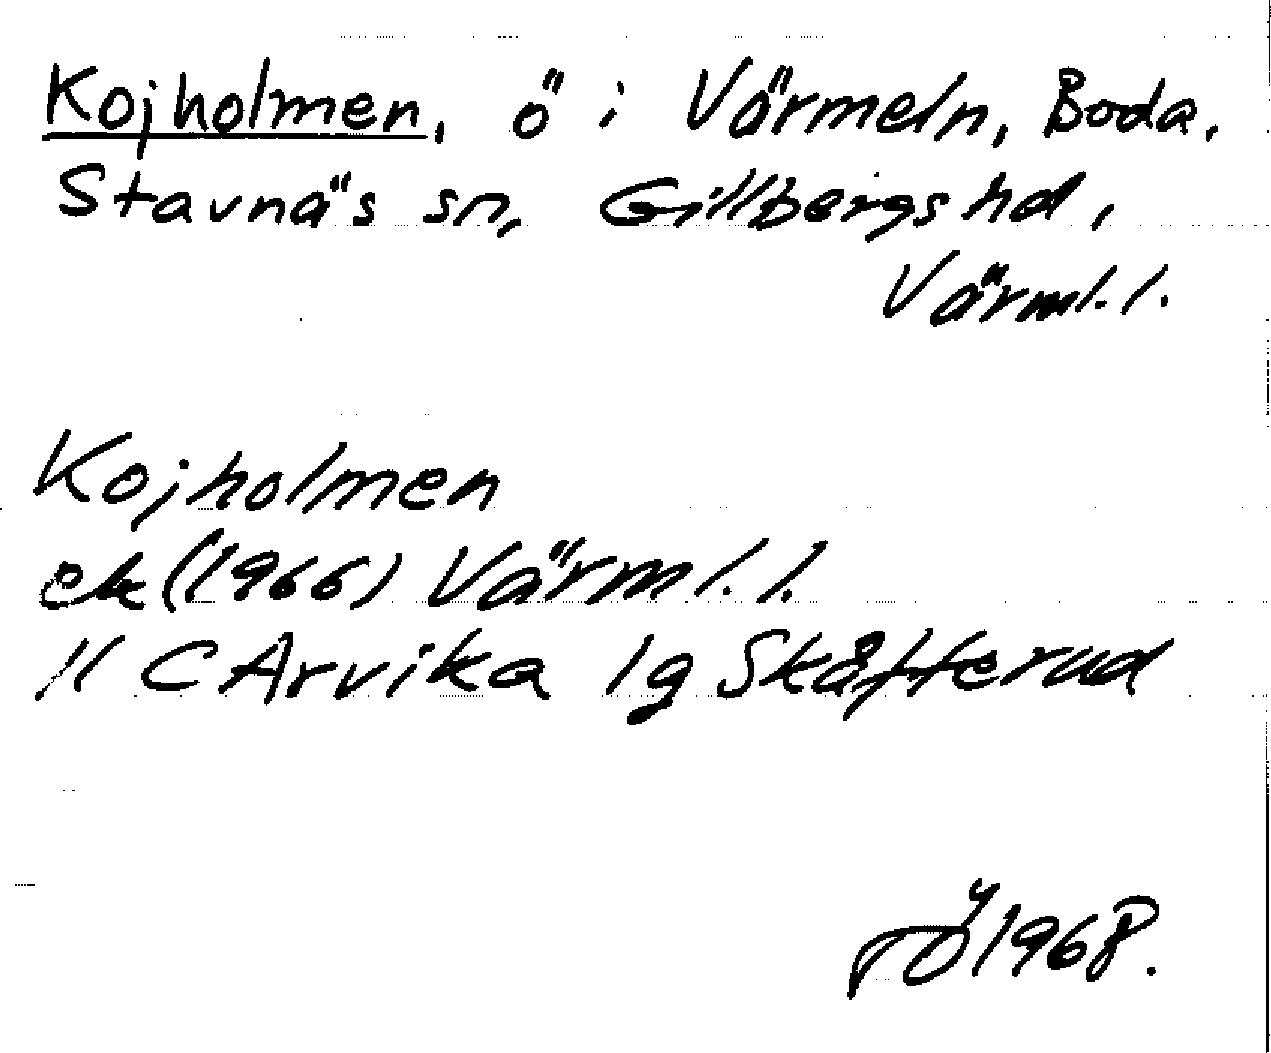 Kojholmen, ö i Värmeln, Boda,
Stavnäs sn, Gillbergs hd,
Värml. l.
Kojholmen
ek (1966) Värml. l.
11 C Arvika 1g Skåfferud
TÖ 1968.